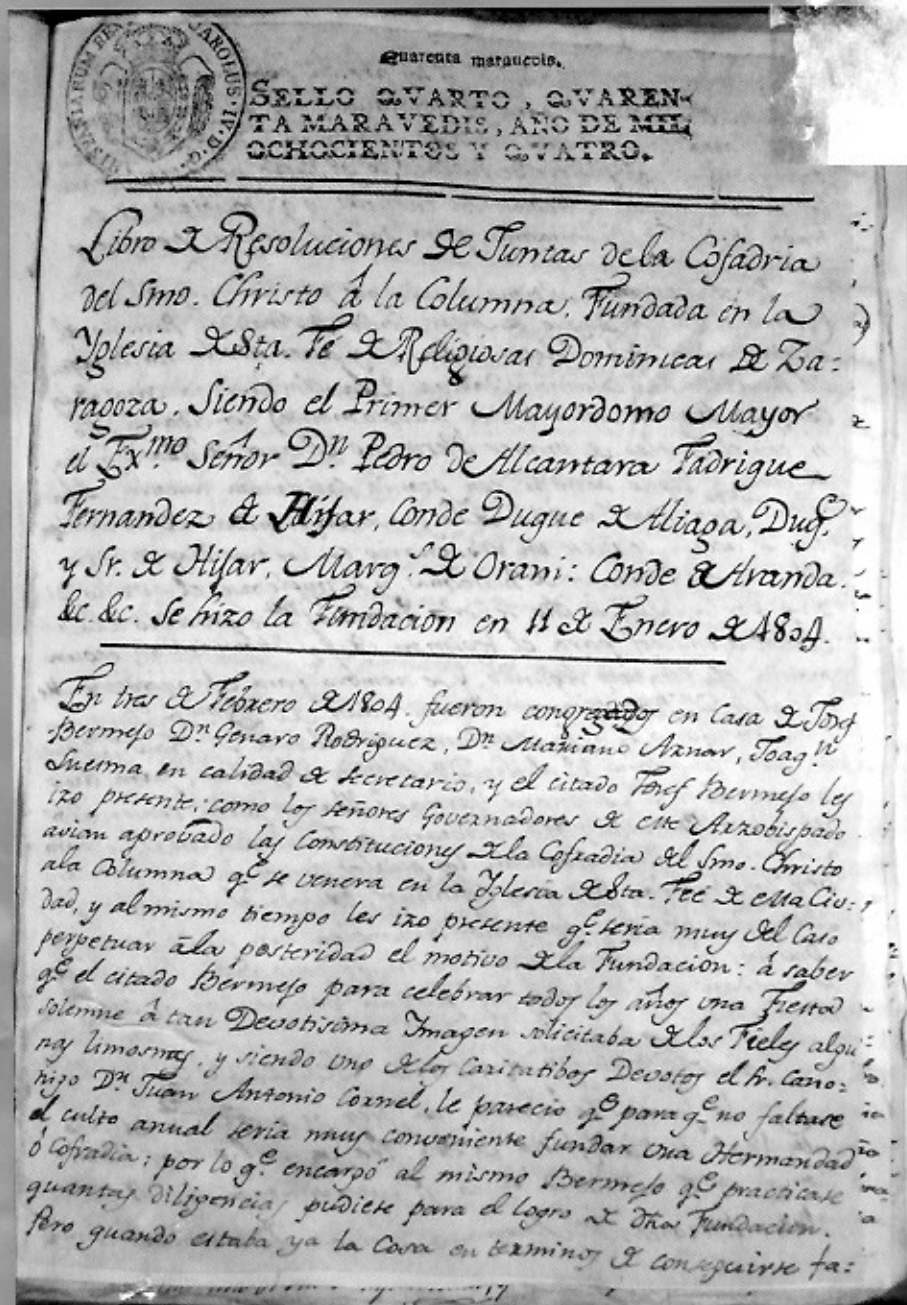 HISPANIARUM REX CAROLUS · IV · D · G ·
Quarenta marauedis.
SELLO QVARTO, QVAREN-
TA MARAVEDIS, AÑO DE MIL
OCHOCIENTOS Y QVATRO.
Libro de Resoluciones de Juntas de la Cofadria
del Smo. Christo â la Columna. Fundada en la
Yglesia de Sta. Fé de Religiosas Dominicas de Za:
ragoza. Siendo el Primer Mayordomo Mayor
el Exmo. Señor Dn. Pedro de Alcantara Fadrique
Fernandez de Hijar, Conde Duque de Aliaga, Duq.e
y Sr. de Hijar, Marq.s de Orani: Conde de Aranda.
&c. &c. Se hizo la Fundacion en 11 de Enero de 1804.
En tres de Febrero de 1804. fueron congregados en Casa de Josef
Bermejo Dn. Genaro Rodriguez, Dn. Mariano Aznar, Joaq.n
en calidad de Secretario, y el citado Josef Bermejo les
izo presente, como los señores Governadores de este Arzobispado
avian aprobado las Constituciones de la Cofradia del Smo. Christo
ala Columna q.e se venera en la Yglesia de Sta. Feé de esta Ciu:
dad, y al mismo tiempo les izo presente q.e seria muy del Caso
perpetuar âla posteridad el motivo de la Fundacion: â saber
q.e el citado Bermejo para celebrar todos los años una Fiesta
solemne â tan Devotisima Ymagen solicitaba de los Fieles algu:
nas limosnas, y siendo uno de los Caritatibos Devotos el Sr. Cano:
nigo Dn. Juan Antonio Cornel, le parecio q.e para q.e no faltase
el culto anual seria muy conveniente fundar una Hermandad
ô Cofradia; por lo q.e encargó al mismo Bermejo q.e practicase
quantas diligencias pudiese para el logro de dha Fundacion.
Pero quando estaba ya la Cosa en terminos de conseguirse fa: